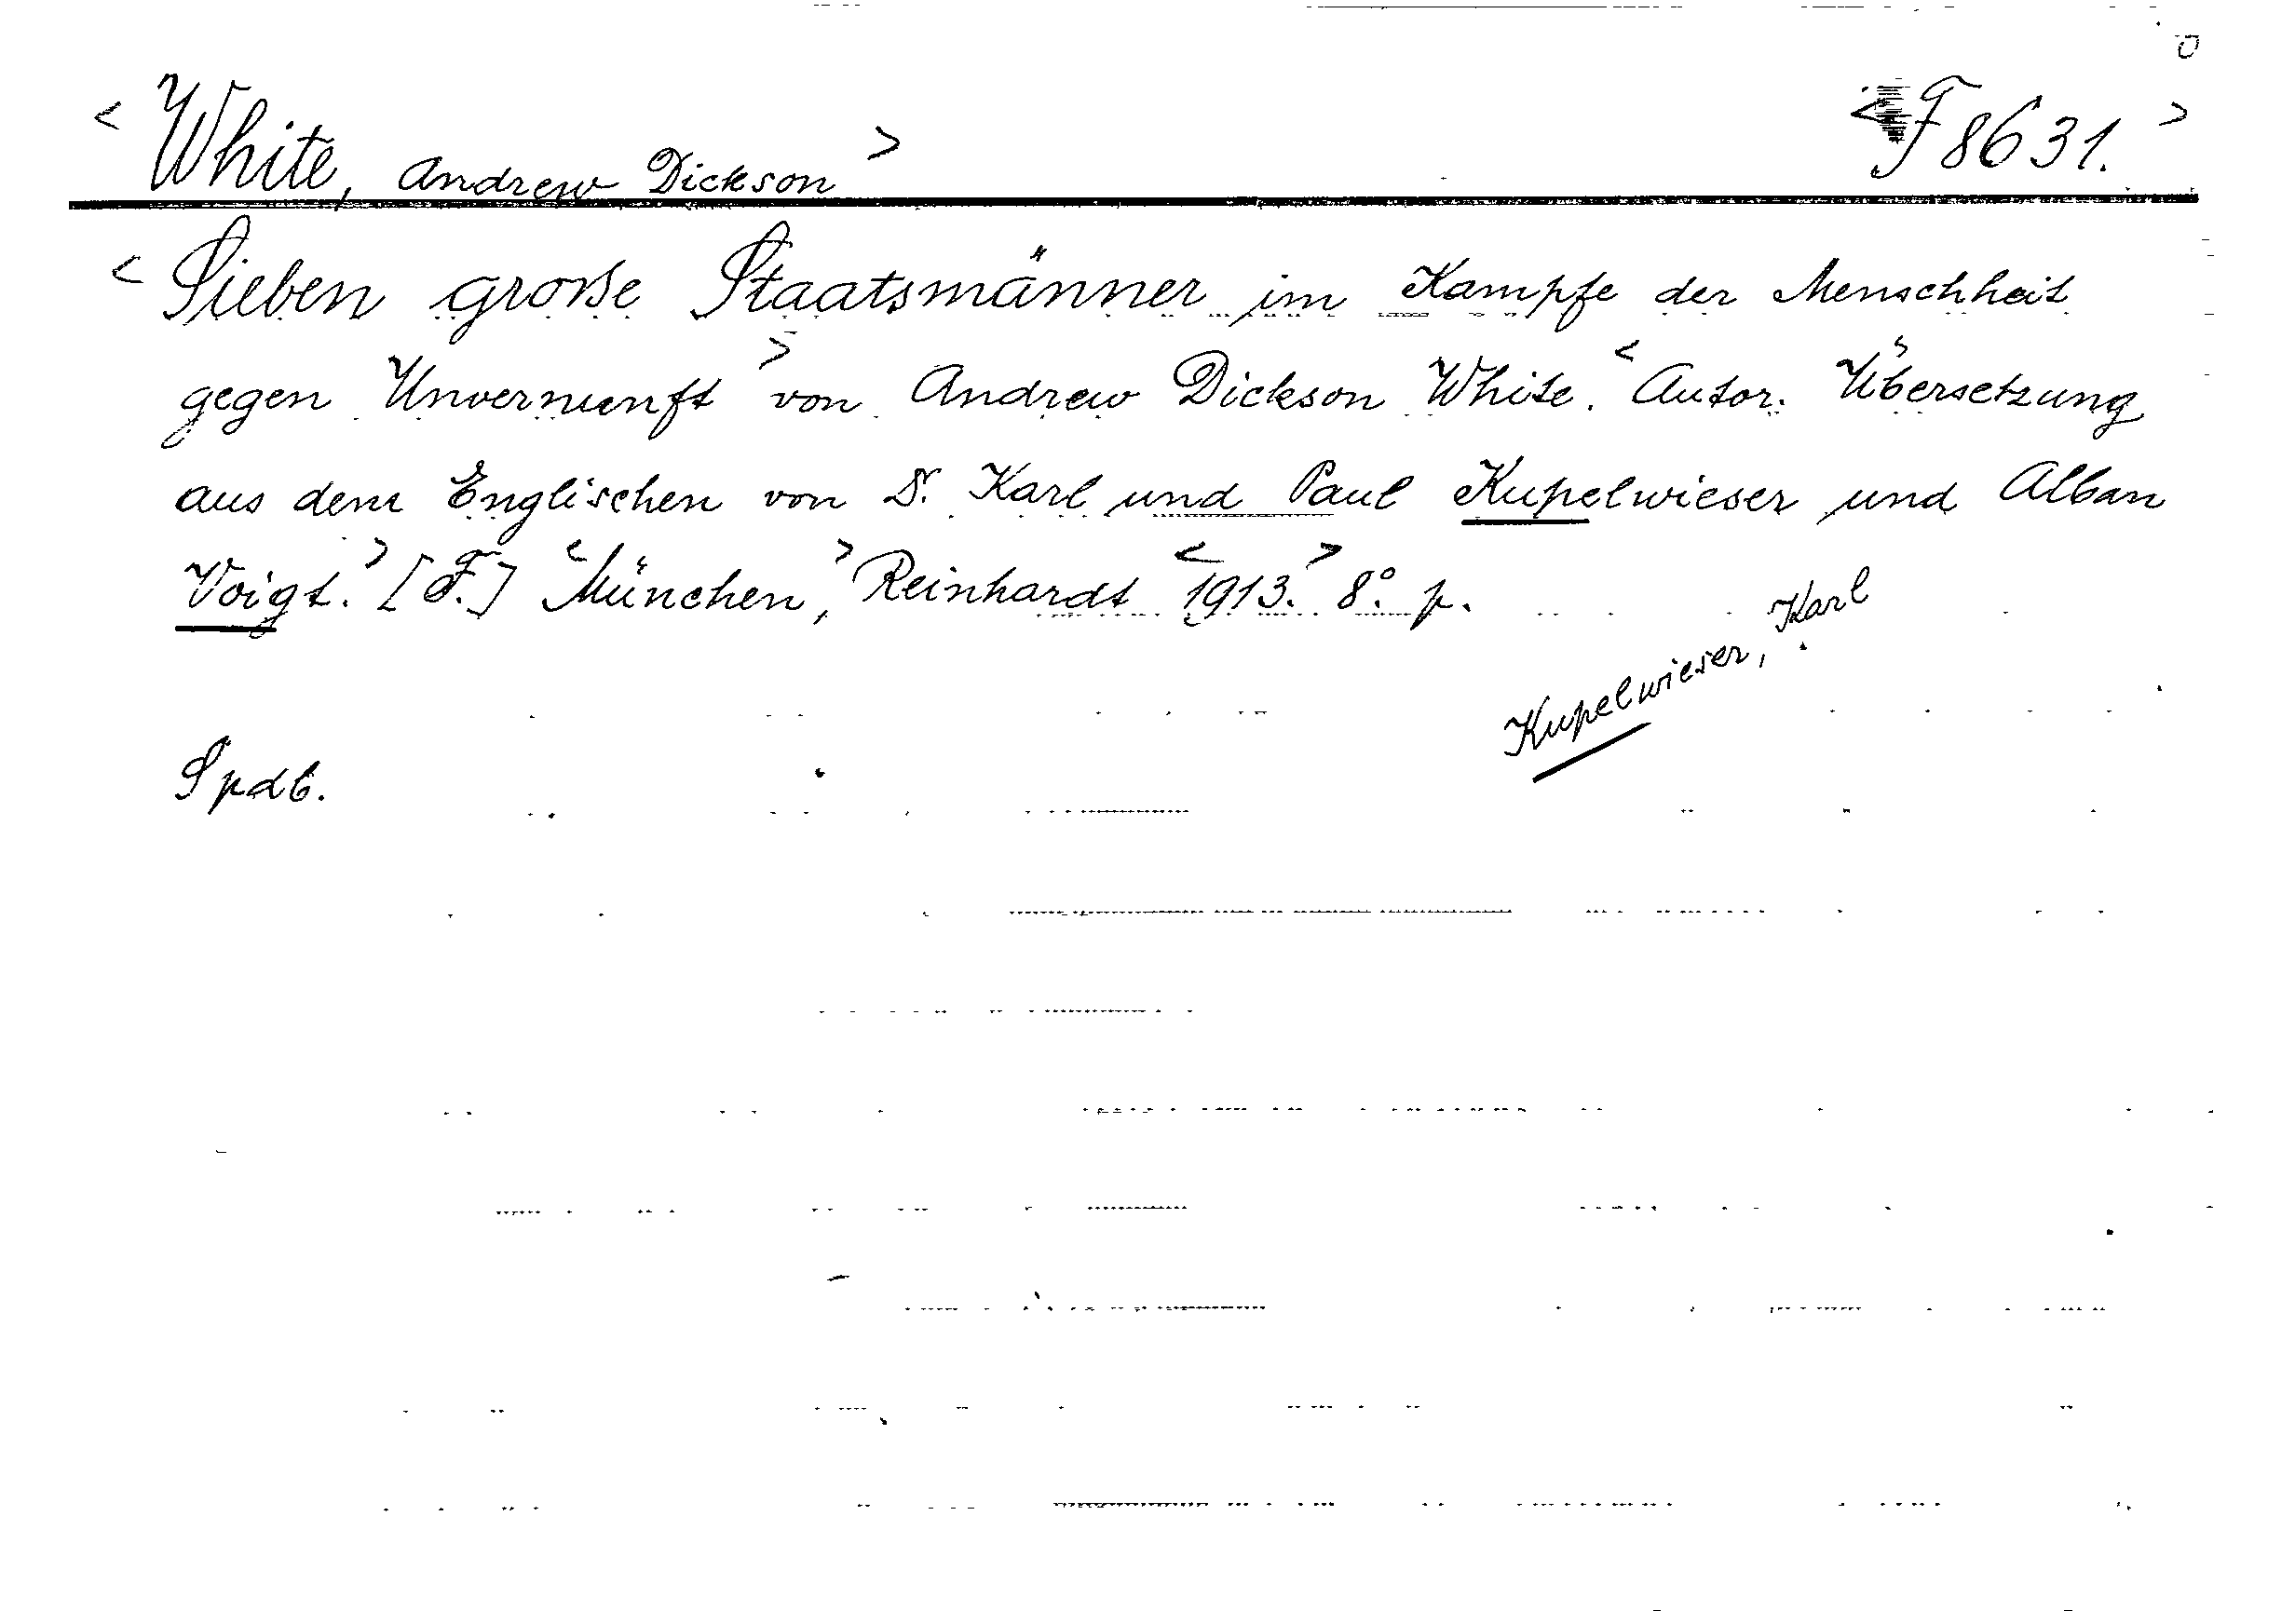 < White, Andrew Dickson > < F 8631. >
< Sieben große Staatsmänner im Kampfe der Menschheit
gegen Unvernunft > von Andrew Dickson White. < Autor. Übersetzung
aus dem Englischen von Dr. Karl und Paul Kupelwieser und Alban
Voigt. > [F.] < München, > Reinhardt < 1913. > 8°. p.
Kupelwieser, Karl
Spdb.